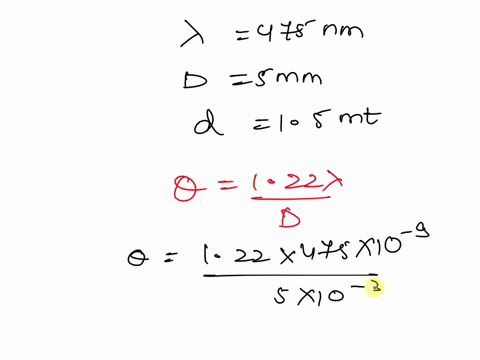 λ = 475 nm
D = 5mm
d = 1.5 mt
θ = 1.22λ / D
θ = 1.22 × 475 × 10⁻⁹ / 5 × 10⁻³